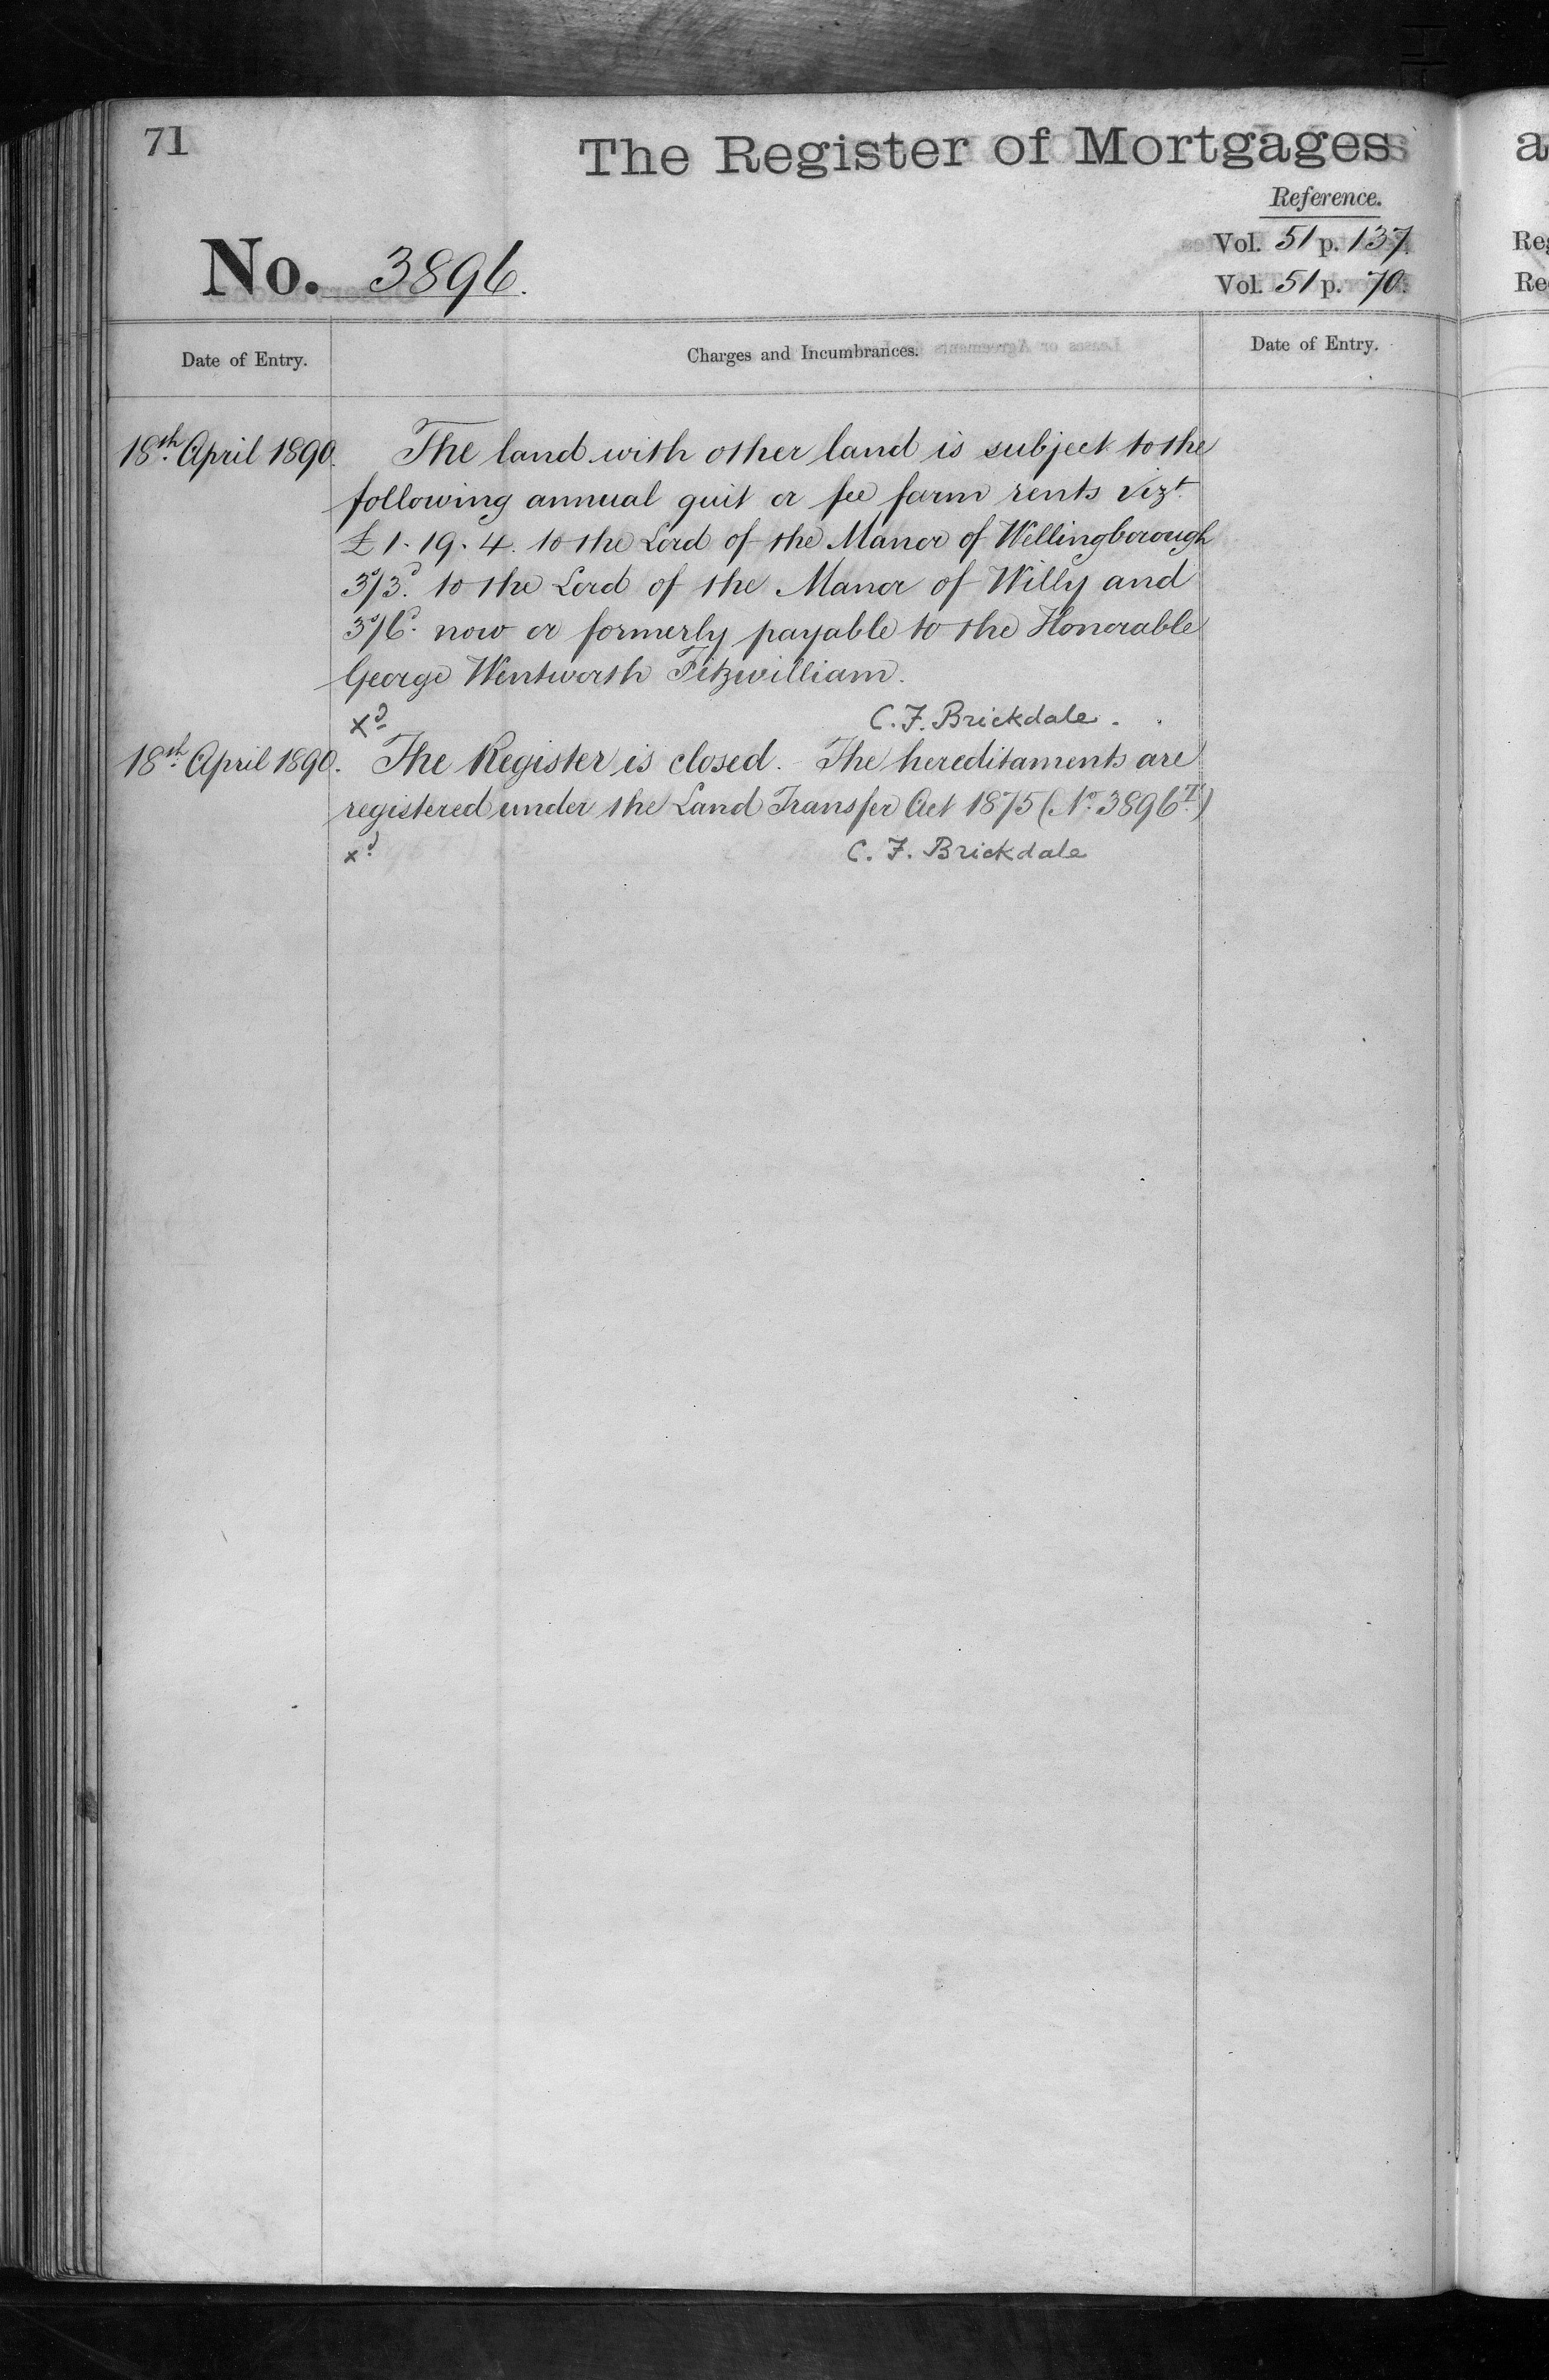 71
The Register of Mortgages
a
Reference.
Vol. 51 p. 137.
Reg
No. 3896.
Vol. 51 p. 70.
Re
Date of Entry.
Charges and Incumbrances.
Date of Entry.
18th April 1890.
The land with other land is subject to the
following annual quit or fee farm rents vizt
£1.19.4. to the Lord of the Manor of Wellingborough
3s/3d. to the Lord of the Manor of Willy and
3s/6d. now or formerly payable to the Honorable
George Wentworth Fitzwilliam.
xd C. F. Brickdale.
18th April 1890.
The Register is closed. The hereditaments are
registered under the Land Transfer Act 1875 (No. 3896T.)
xd C. F. Brickdale